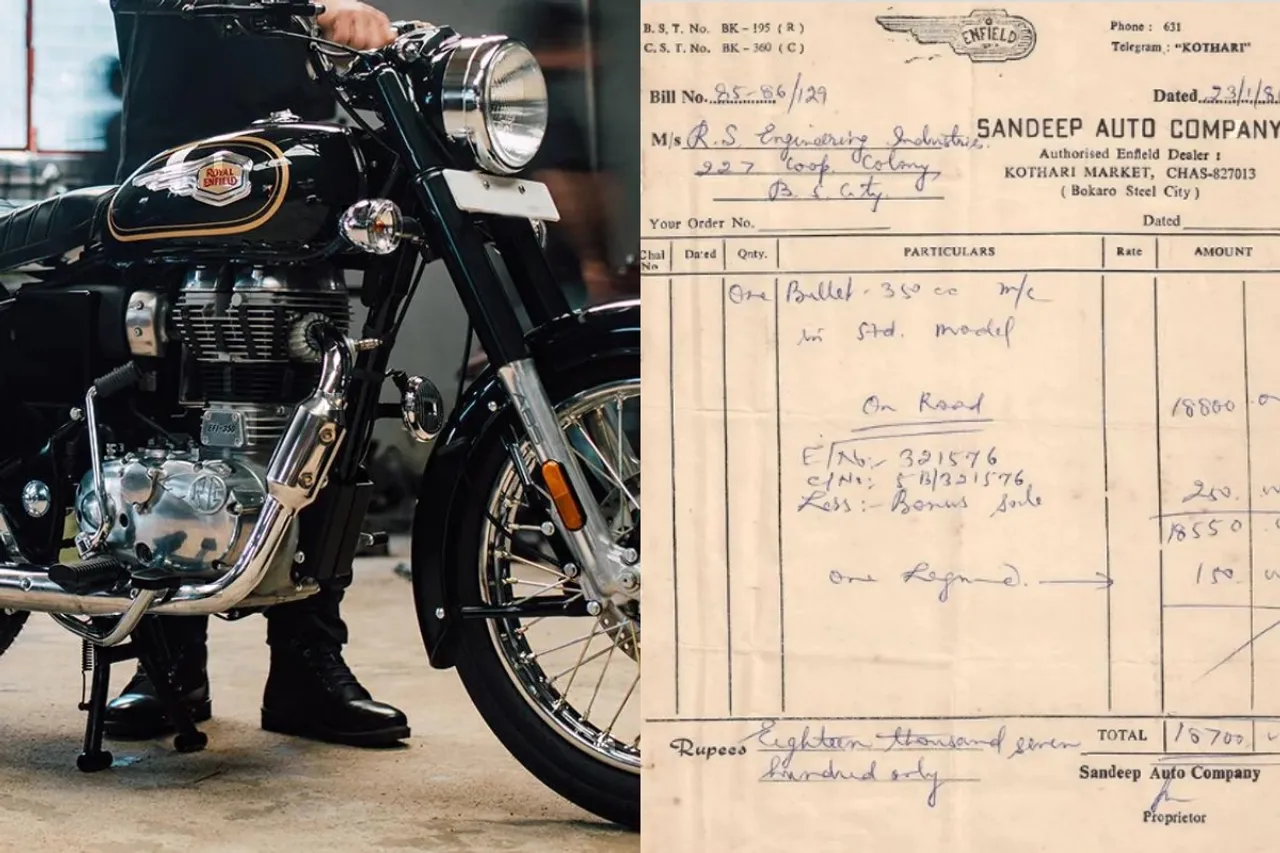 ROYAL
ENFIELD
EFI-350
RE
B. S. T. No. BK - 195 ( R )
C. S. T. No. BK - 360 ( C )
ENFIELD
Phone : 631
Telegram : "KOTHARI"
Bill No. 85-86/129
Dated 23/1/86
M/s R. S. Engineering Industries.
227 Coop. Colony
B. S. City.
SANDEEP AUTO COMPANY
Authorised Enfield Dealer :
KOTHARI MARKET, CHAS-827013
( Bokaro Steel City )
Your Order No.
Dated
Chal No Dated Qnty. PARTICULARS Rate AMOUNT
One Bullet - 350 cc m/c
in Std. model
On Road 18800
E/No:- 321576
C/No: 5B/321576
Less :- Bonus sode 250
18550
One Legguard. 150
Rupees Eighteen thousand seven
hundred only
TOTAL 18700
Sandeep Auto Company
Proprietor